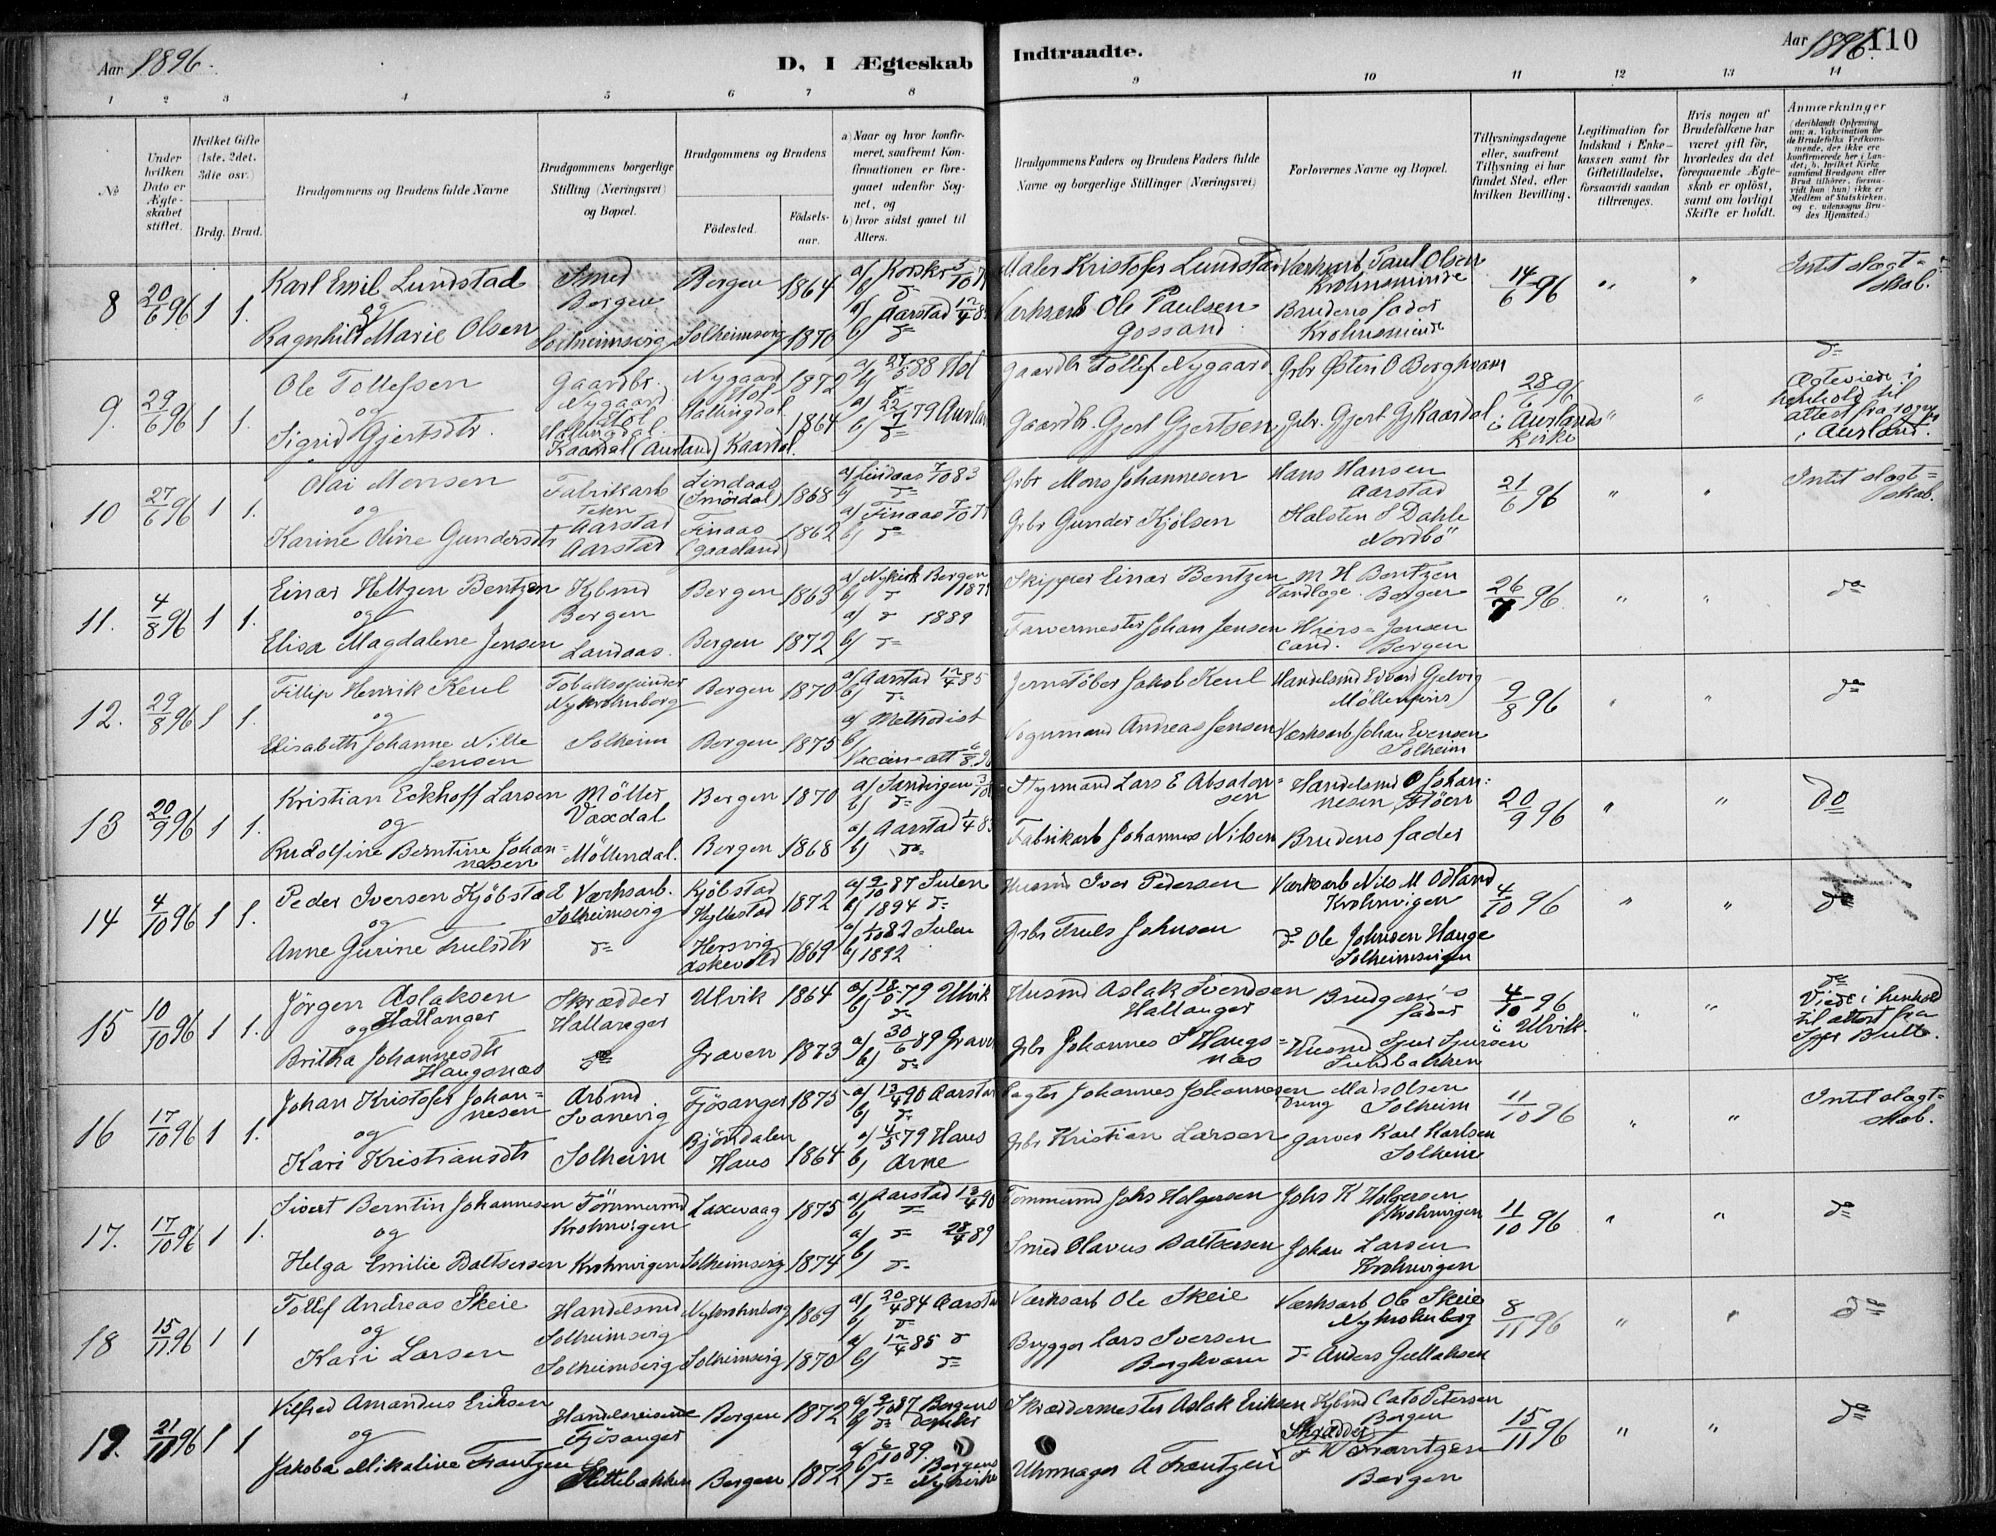 Aar 1896.
D, I Ægteskab Indtraadte.
Aar 1896.
110
1 2 3 4 5 6 7 8 9 10 11 12 13 14
№
Under hvilken Dato er Ægteskabet stiftet.
Hvilket Gifte (1ste, 2det, 3die osv.)
Brdg. Brud.
Brudgommens og Brudens fulde Navne
Brudgommens borgerlige Stilling (Næringsvei) og Bopæl.
Brudgommens og Brudens
Födested.
Födsels-aar.
a) Naar og hvor konfirmeret, saafremt Konfirmationen er foregaaet udenfor Sognet, og
b) hvor sidst gaaet til Alters.
Brudgommens Faders og Brudens Faders fulde Navne og borgerlige Stillinger (Næringsvei)
Forlovernes Navne og Bopæl.
Tillysningsdagene eller, saafremt Tillysning ei har fundet Sted, efter hvilken Bevilling.
Legitimation for Indskud i Enkekassen samt for Giftetilladelse, forsaavidt saadan tiltrænges.
Hvis nogen af Brudefolkene har været gift för, hvorledes da det foregaaende Ægteskab er oplöst, samt om lovligt Skifte er holdt.
Anmærkninger
(deriblandt Oplysning om: a. Vakcination for de Brudefolks Vedkommende, der ikke ere konfirmerede her i Landet; b. hvilket Kirkesamfund Brudgom eller Brud tilhörer, forsaavidt han (hun) ikke er Medlem af Statskirken, og c. udensogns Brudes Hjemsted.)
8 20/6 96 1 1. Karl Emil Lundstad Smed Bergen Bergen 1864 Maler Kristofer Lundstad Værksarb. Paul Olsen Krohnsminde 14/6 96 " " Intet slægtskab.
og
Ragnhild Marie Olsen Solheimsvig Solheimsvig 1870 a) Aarstad b) do Værksarb Ole Paulsen Brudens fader Krohnsminde
9. 29/6 96 1 1. Ole Tollefsen Gaardbr. Nygaard Hol Hallingdal Nygaard Hol Hallingdal 1872 88 Hol Gaardbr Tollef Nygaard Gbr Østen O Berghvam 28/6 96 i Aurlands Kirke " " do Ægteviede i henhold til attest fra sogpr i Aurland.
og
Sigrid Gjertsdtr. Kaardal (Aurland) Kaardal. 1864 79 Aurland Gaardbr. Gjert Gjertsen, Gbr. Gjert Gj Kaardal
10 27/6 96 1 1. Olai Monsen Fabrikarb Aarstad Lindaas 1868 a) Lindaas 7/10 83 b) do Gbr Mons Johannesen Hans Hansen Aarstad 21/6 96 " " Intet slægtskab.
og
Karine Oline Gundersdtr Aarstad Finaas 1862 a) Finaas b) do Gbr Gunder Kjölsen Halsten S Dahle Nordbö
11. 4/8 96 1 1. Einar Heltzen Bentzen Kjbmd Bergen Bergen 1863 a) Nykirk Bergen Skipper Einar Bentzen M H Bentzen Tandlæge. Bergen 26/7 96. " " do
og
Elisa Magdalene Jensen Landaas. Bergen 1872 a) do 1889 b) do Farvermester Johan Jensen Wiers-Jensen cand. Bergen
12. 29/8 96 1 1. Fillip Henrik Keul Nykrohnborg Bergen 1870 a) Aarstad 12/4 85 b) do Jernstöber Jakob Keul Handelsmd Edvard Gjelvig Möllendal 9/8 96 " " do
og
Elisabeth Johanne Nille Jensen Solheim Bergen 1875 a) Methodist b) Vognmand Andreas Jensen Værksarb Johan Evensen Solheim
13 20/9 96 1 1. Kristian Eckhoff Larsen Möller Vaxdal Bergen 1870 a) Sandvigen b) do Styrmand Lars E Absalonsen Handelsmd O Johannesen Flöen 20/9 96 " " do
og
Rudolfine Berntine Johannesen Möllendal. Bergen 1868 a) Aarstad b) do Fabrikarb Johannes Nilsen Brudens fader
14 4/10 96 1 1. Peder Iversen Kjöbstad Værksarb. Solheimsvig Kjöbstad Hyllestad 1872 a) 9/10 87 Sulen b) 1894 do Husmd Iver Pedersen Værksarb Nils M Odland Krohnvigen 4/10 96 " " do
og
Anne Gurine Trulsdtr do Hersvig Askevold 1869 82 Sulen b) 1892 Gbr Truls Johnsen do Ole Johnsen Hauge Solheimsvigen
15 10/10 96 1 1. Jörgen Aslaksen Hallanger Skrædder Hallanger Ulvik 1864 79 Ulvik b) do Husmd Aslak Svendsen Hallanger Brudgom's fader 4/10 96 i Ulvik. " " do Viede i henhold til attest fra
og
Britha Johannesdtr Haugsnæs do Graven 1873 a) 30/6 89 Graven b) do Gbr Johannes S Haugsnæs Husmd Sjur Sjursen
16 17/10 96 1 1. Johan Kristofer Johannesen Arbmd Svanevig Fjösanger 1875 a) 13/4 90 Aarstad b) do Johannes Johannesen Mads Olsen Solheim 11/10 96 " " Intet slægtskab.
og
Kari Kristiansdtr Solheim Bjöndalen Haus 1864 79 Haus b) Arne Gbr Kristian Larsen Garver Karl Karlsen Solheim
17. 17/10 96 1 1. Sivert Berntin Johannesen Tömmermd Krohnvigen Laxevaag 1875 a) Aarstad 13/4 90 b) do Tömmermd Johs Holgersen Johs K Holgersen Krohnvigen 11/10 96 " " do
og
Helga Emilie Baltsersen Krohnvigen Solheimsvig 1874 a) do 28/4 89 b) do Smed Olavus Baltsersen Johan Larsen Krohnvigen
18 15/11 96 1 1 Tollef Andreas Skeie Handelsmd Solheimsvig Nykrohnborg 1869 a) 20/4 84 Aarstad b) do Værksarb Ole Skeie Værksarb Ole Skeie Nykrohnborg 8/11 96 " " do
og
Kari Larsen Solheimsvig Solheimsvig 1870 a) 12/4 85 do b) do Brygger Lars Iversen Berghvam do Anders Gullaksen
19. 21/11 96 1 1 Vilfred Amandus Eriksen Handelsreisende Fjösanger Bergen 1872 87 Bergens Domkir b) do Skræddermester Aslak Eriksen Kjbmd Cato Petersen Bergen 15/11 96 " " do
og
Jakoba Mikaline Frantzen Slettebakken Bergen 1872 a) 6/10 89 b) do Bergens Nykirke Uhrmager A Frantzen Skrædder F W Frantzen Bergen